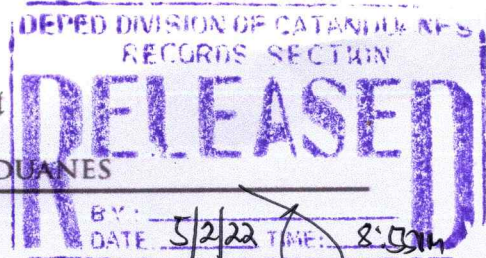 DEPED DIVISION OF CATANDUANES
RECORDS SECTION
RELEASED
DUANES
BY:
DATE 5/2/22 TIME: